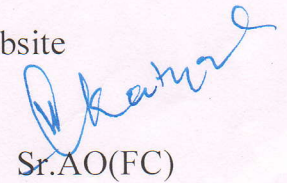 bsite
Sr.AO(FC)